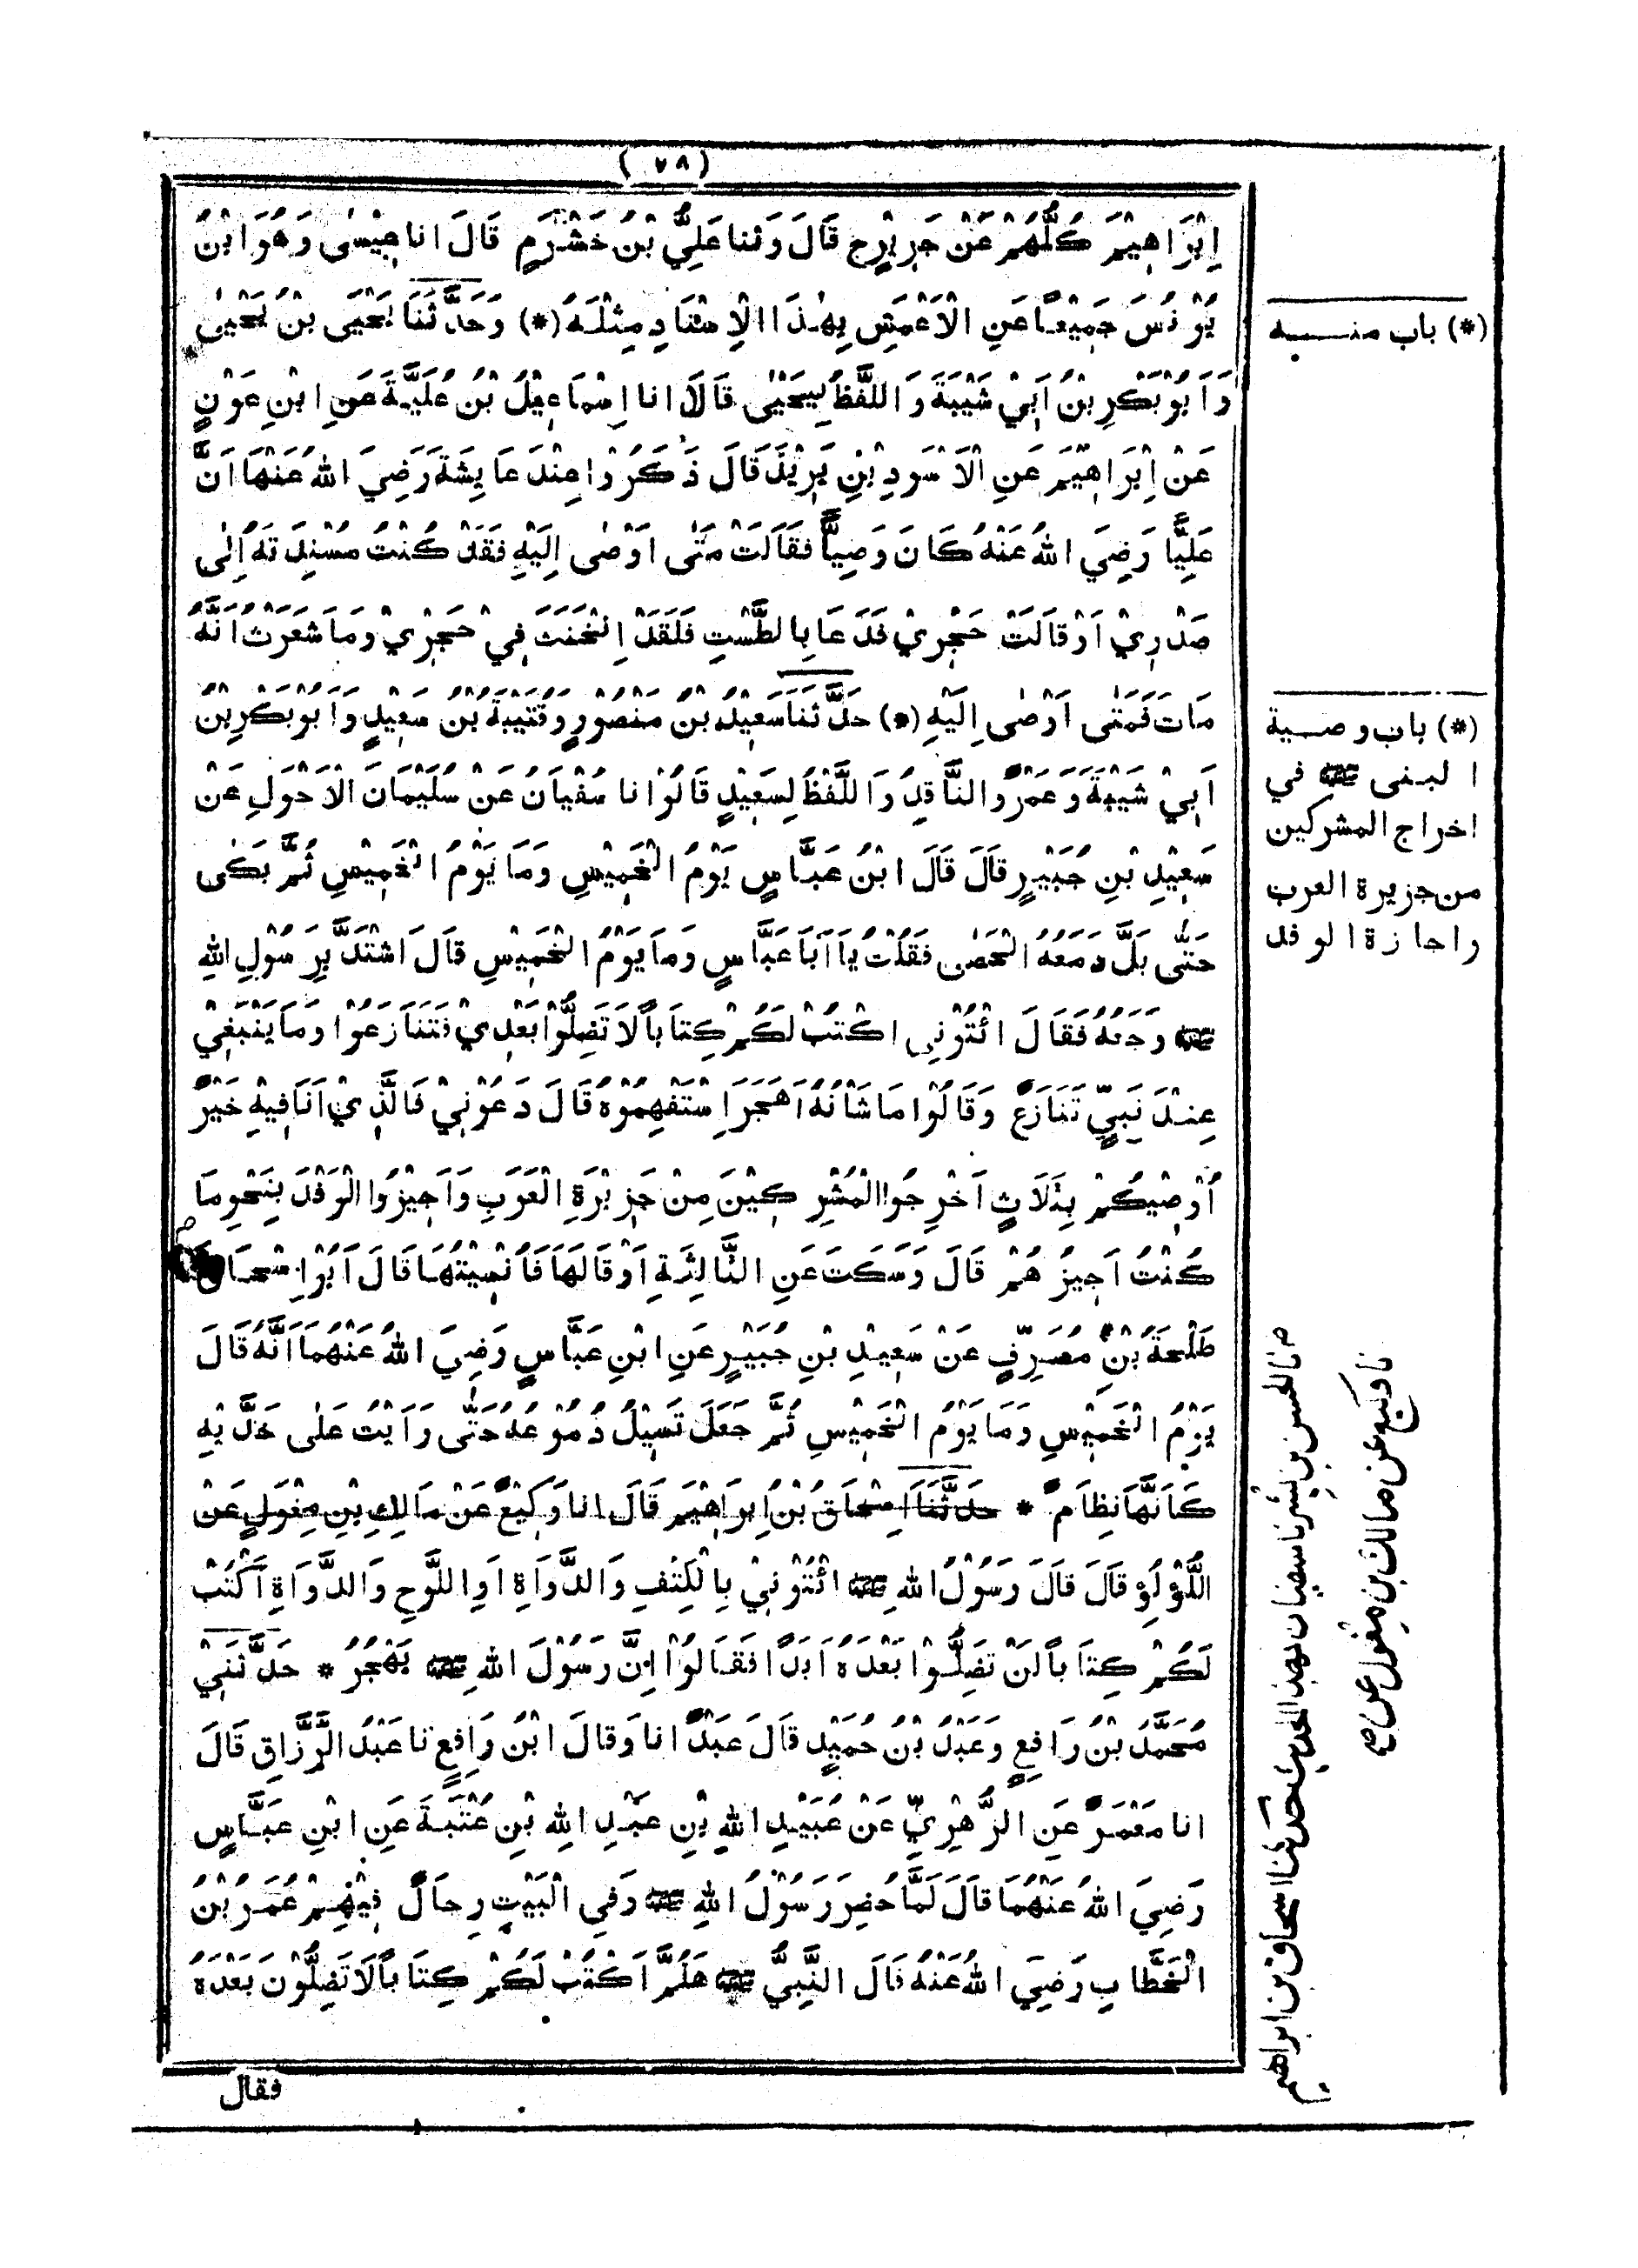 ( ٧٨ )
اِبْرَاهِيْمَ كُلُّهُمْ عَنْ جَرِيْرٍ ح قَالَ وَثنا عَلِيُّ بْنُ خَشْرَمٍ قَالَ انا عِيْسٰى وَهُوَ ابْنُ
يُوْنُسَ جَمِيْعًا عَنِ الْاَعْمَشِ بِهٰذَا الْاِسْنَادِ مِثْلَهُ (*) وَحَدَّثَنَا يَحْيَى بْنُ يَحْيٰى
وَاَبُوْبَكْرِ بْنُ اَبِيْ شَيْبَةَ وَاللَّفْظُ لِيَحْيٰى قَالَا انا اِسْمَاعِيْلُ بْنُ عُلَيَّةَ عَنِ ابْنِ عَوْنٍ
عَنْ اِبْرَاهِيْمَ عَنِ الْاَسْوَدِ بْنِ يَزِيْدَ قَالَ ذَكَرُوْا عِنْدَ عَايِشَةَ رَضِيَ اللهُ عَنْهَا اَنَّ
عَلِيًّا رَضِيَ اللهُ عَنْهُ كَانَ وَصِيًّا فَقَالَتْ مَتٰى اَوْصٰى اِلَيْهِ فَقَدْ كُنْتُ مُسْنِدَتَهُ اِلٰى
صَدْرِيْ اَوْ قَالَتْ حَجْرِيْ فَدَعَا بِالطَّسْتِ فَلَقَدْ اِنْخَنَثَ فِيْ حَجْرِيْ وَمَا شَعَرْتُ اَنَّهُ
مَاتَ فَمَتٰى اَوْصٰى اِلَيْهِ (*) حَدَّثَنَا سَعِيْدُ بْنُ مَنْصُوْرٍ وَقُتَيْبَةُ بْنُ سَعِيْدٍ وَاَبُوْبَكْرِ بْنُ
اَبِيْ شَيْبَةَ وَعَمْرٌو النَّاقِدُ وَاللَّفْظُ لِسَعِيْدٍ قَالُوْا نا سُفْيَانُ عَنْ سُلَيْمَانَ الْاَحْوَلِ عَنْ
سَعِيْدِ بْنِ جُبَيْرٍ قَالَ قَالَ ابْنُ عَبَّاسٍ يَوْمُ الْخَمِيْسِ وَمَا يَوْمُ الْخَمِيْسِ ثُمَّ بَكٰى
حَتّٰى بَلَّ دَمْعُهُ الْحَصٰى فَقُلْتُ يَا اَبَا عَبَّاسٍ وَمَا يَوْمُ الْخَمِيْسِ قَالَ اشْتَدَّ بِرَسُوْلِ اللهِ
ﷺ وَجَعُهُ فَقَالَ ائْتُوْنِى اَكْتُبْ لَكُمْ كِتَابًا لَا تَضِلُّوْا بَعْدِيْ فَتَنَازَعُوْا وَمَا يَنْبَغِيْ
عِنْدَ نَبِيٍّ تَنَازُعٌ وَقَالُوْا مَا شَاْنُهُ اَهَجَرَ اِسْتَفْهِمُوْهُ قَالَ دَعُوْنِيْ فَالَّذِيْ اَنَا فِيْهِ خَيْرٌ
اُوْصِيْكُمْ بِثَلَاثٍ اَخْرِجُوا الْمُشْرِكِيْنَ مِنْ جَزِيْرَةِ الْعَرَبِ وَاَجِيْزُوا الْوَفْدَ بِنَحْوِ مَا
كُنْتُ اُجِيْزُهُمْ قَالَ وَسَكَتَ عَنِ الثَّالِثَةِ اَوْ قَالَهَا فَاُنْسِيْتُهَا قَالَ اَبُوْ اِسْحَاقَ
طَلْحَةُ بْنُ مُصَرِّفٍ عَنْ سَعِيْدِ بْنِ جُبَيْرٍ عَنِ ابْنِ عَبَّاسٍ رَضِيَ اللهُ عَنْهُمَا اَنَّهُ قَالَ
يَوْمُ الْخَمِيْسِ وَمَا يَوْمُ الْخَمِيْسِ ثُمَّ جَعَلَ تَسِيْلُ دُمُوْعُهُ حَتّٰى رَاَيْتُ عَلٰى خَدَّيْهِ
كَاَنَّهَا نِظَامٌ * حَدَّثَنَا اِسْحَاقُ بْنُ اِبْرَاهِيْمَ قَالَ انا وَكِيْعٌ عَنْ مَالِكِ بْنِ مِغْوَلٍ عَنْ
اللُّؤْلُؤِ قَالَ قَالَ رَسُوْلُ اللهِ ﷺ ائْتُوْنِيْ بِالْكَتِفِ وَالدَّوَاةِ اَوِ اللَّوْحِ وَالدَّوَاةِ اَكْتُبْ
لَكُمْ كِتَابًا لَنْ تَضِلُّوْا بَعْدَهُ اَبَدًا فَقَالُوْا اِنَّ رَسُوْلَ اللهِ ﷺ يَهْجُرُ * حَدَّثَنِيْ
مُحَمَّدُ بْنُ رَافِعٍ وَعَبْدُ بْنُ حُمَيْدٍ قَالَ عَبْدٌ انا وَقَالَ ابْنُ رَافِعٍ نا عَبْدُ الرَّزَّاقِ قَالَ
انا مَعْمَرٌ عَنِ الزُّهْرِيِّ عَنْ عُبَيْدِ اللهِ بْنِ عَبْدِ اللهِ بْنِ عُتْبَةَ عَنِ ابْنِ عَبَّاسٍ
رَضِيَ اللهُ عَنْهُمَا قَالَ لَمَّا حُضِرَ رَسُوْلُ اللهِ ﷺ وَفِي الْبَيْتِ رِجَالٌ فِيْهِمْ عُمَرُ بْنُ
الْخَطَّابِ رَضِيَ اللهُ عَنْهُ فَقَالَ النَّبِيُّ ﷺ هَلُمَّ اَكْتُبْ لَكُمْ كِتَابًا لَا تَضِلُّوْنَ بَعْدَهُ
فقال
(*) باب منه
(*) باب وصية
النبى ﷺ في
اخراج المشركين
من جزيرة العرب
واجازة الوفد
نا الحسن بن بشر نا سفيان بهذا الحديث حدثنا اسحاق بن ابراهيم
نا وكيع عن مالك بن مغول عن